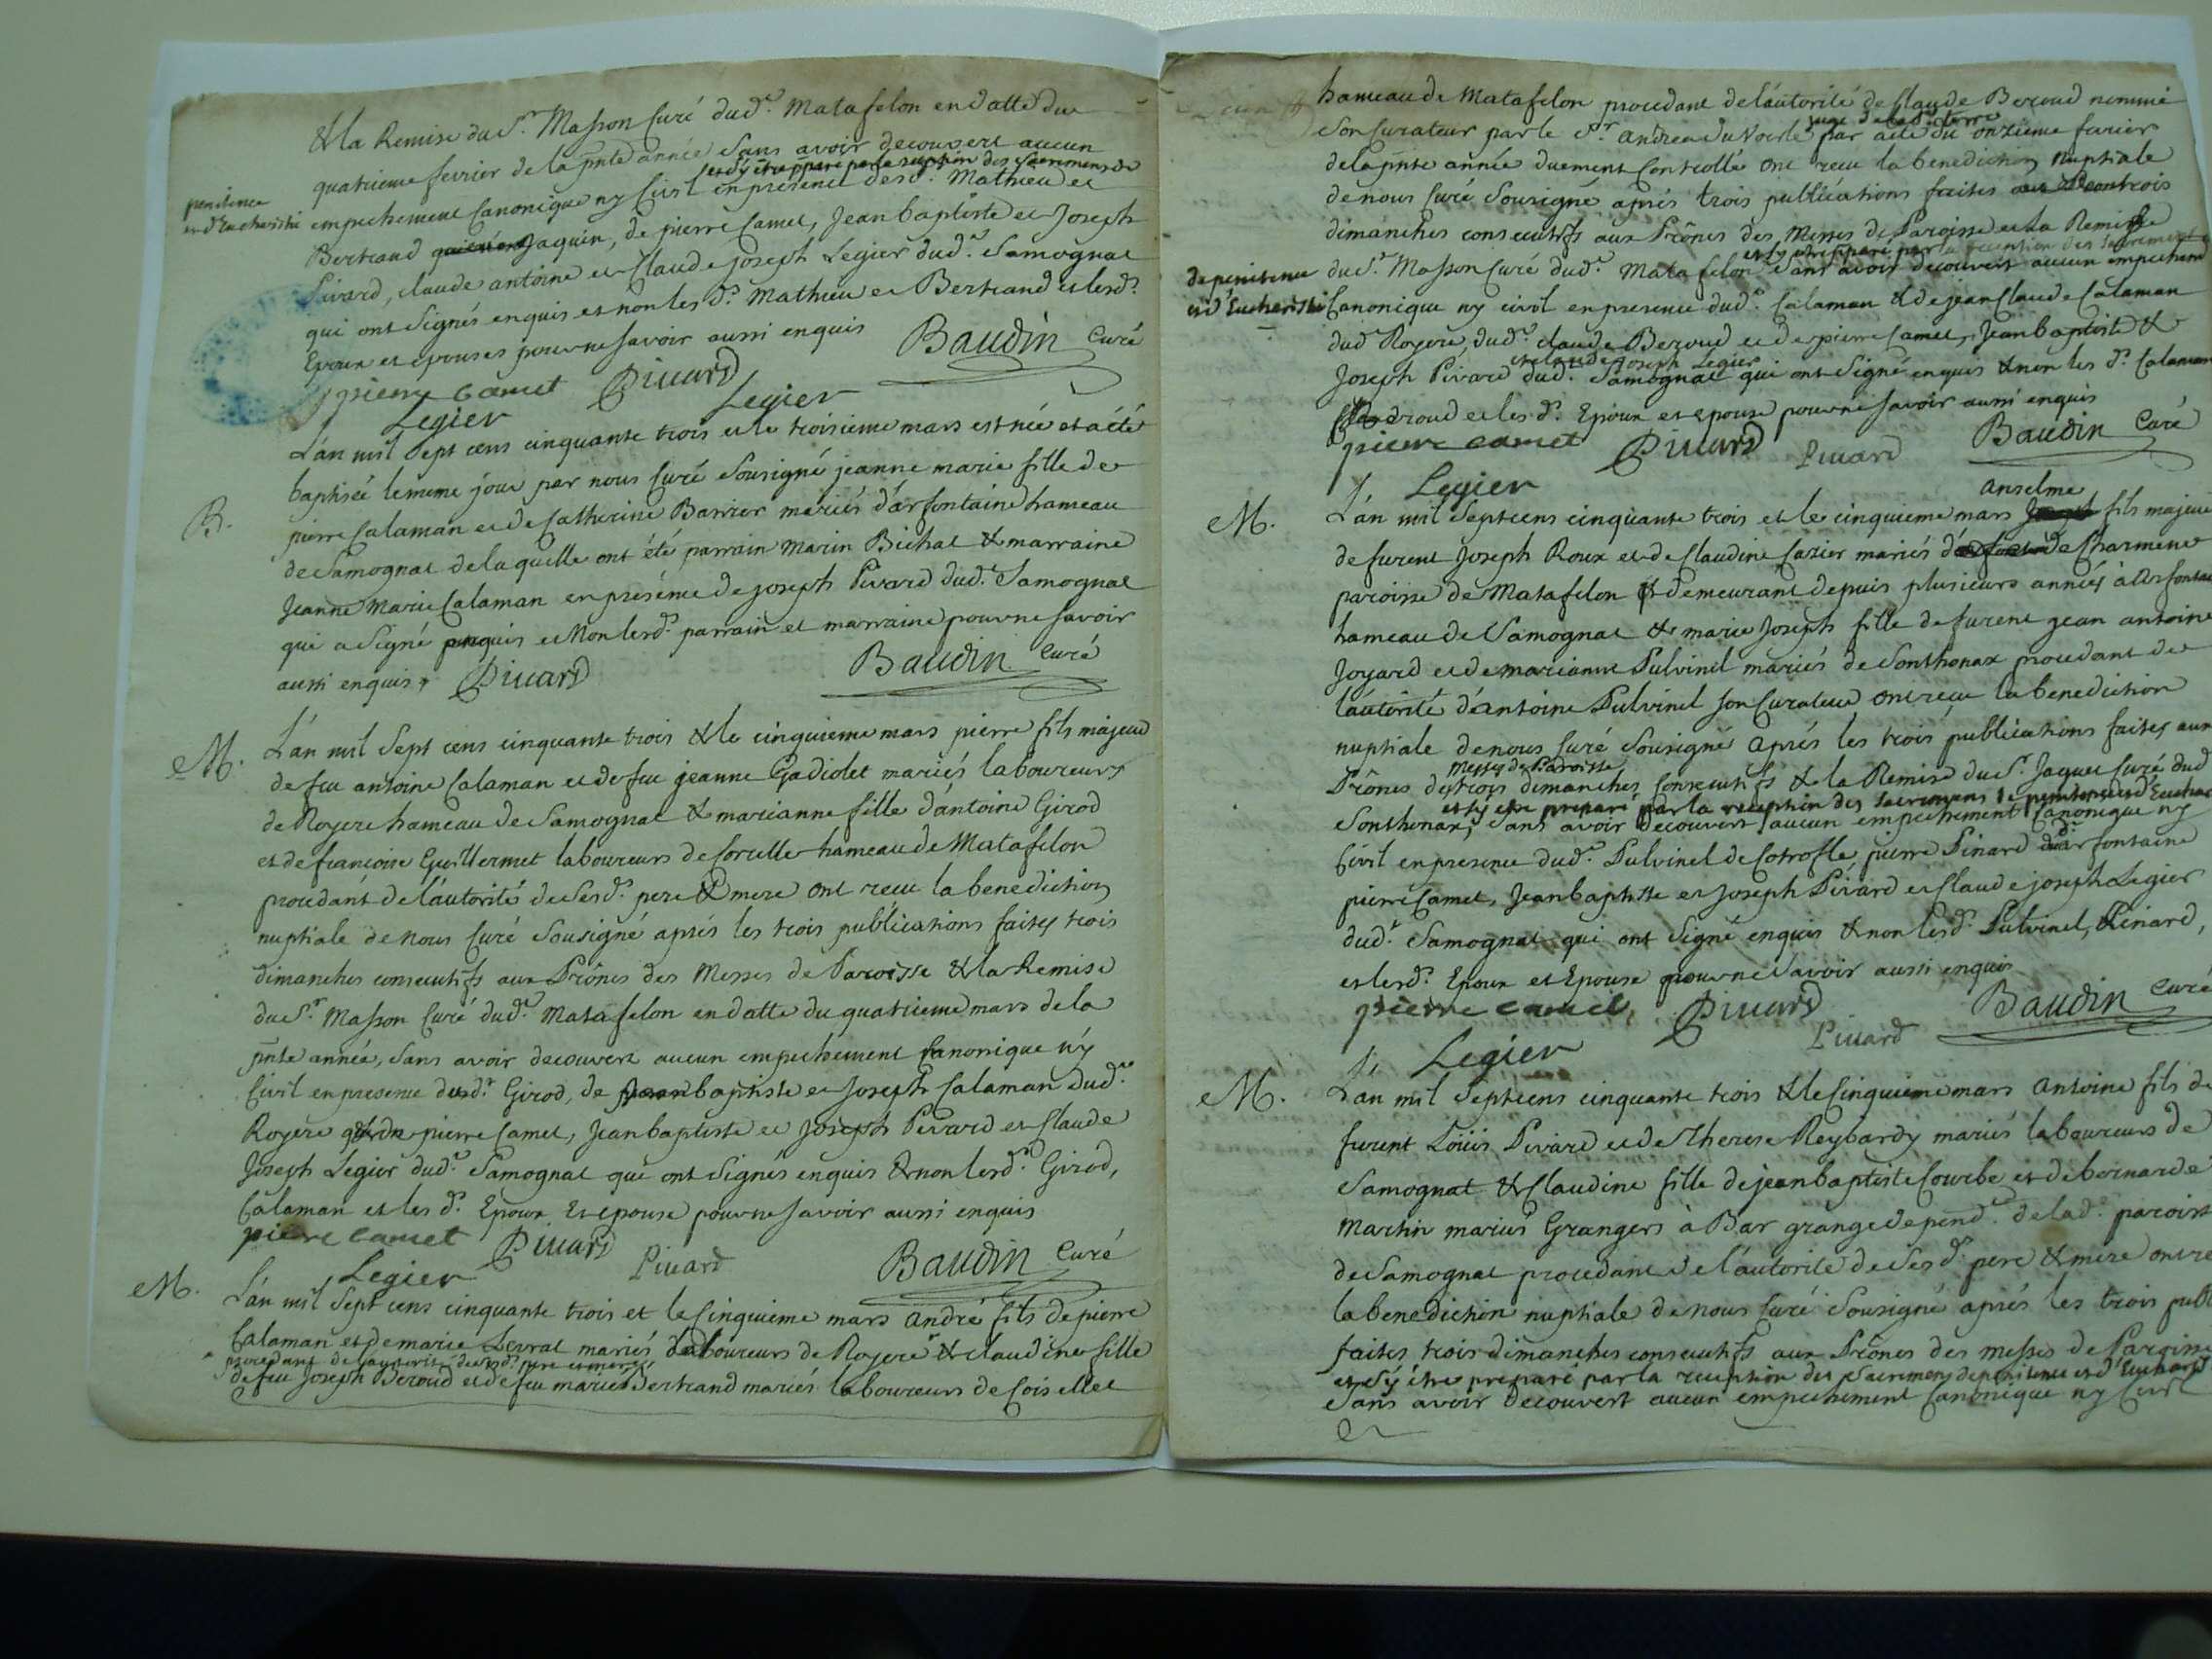 & la Remise du Sr. Masson Curé dudt. Matafelon en datte du
quatrieme fevrier de la pnte année sans avoir decouvert aucun
et s'y être preparé par la reception des Sacremens de
penitence
et d'Eucharistie
empechement Canonique ny Civil en presence desd. Mathieu et
Bertrand Jaquin, de pierre Camet, Jean baptiste et Joseph
Pivard, claude antoine et Claude joseph Legier dudt. Samognat
qui ont Signés enquis et non les ds. Mathieu et Bertrand et lesds.
Epoux et epouses pour ne savoir aussi enquis
Baudin Curé
pierre Camet Pivard
Legier Legier
B.
L'án mil Sept cens cinquante trois et le troisieme mars est née et a été
baptisée le meme jour par nous Curé Sousigné jeanne marie fille de
pierre Calaman et de Catherine Barrier mariés d'arfontaine hameau
de Samognat de laquelle ont été parrain Marin Bichat & marraine
Jeanne Marie Calaman en présence de joseph Pivard dudt. Samognat
qui a Signé enquis et Non lesds. parrain et marraine pour ne savoir
aussi enquis Pivard Baudin Curé
M.
L'án mil Sept cens cinquante trois & le cinquieme mars pierre fils majeur
de feu antoine Calaman et de feu jeanne Gadiolet mariés laboureurs
de Royere hameau de Samognat & marianne fille d'antoine Girod
et de francoise Guillermet laboureurs de Corcelle hameau de Matafelon
procedant de l'autorité de Sesds. pere & mere ont recu la benediction
nuptiale de Nous Curé Sousigné aprés les trois publications faites trois
dimanches consecutifs aux Prônes des Messes de Paroisse & la Remise
du Sr. Masson Curé dudt. Matafelon en datte du quatrieme mars de la
pnte année, sans avoir decouvert aucun empechement Canonique ny
Civil en presence dudt. Girod, de baptiste et Joseph Calaman dudt.
Royere pierre Camet, Jean baptiste et Joseph Pivard et Claude
Joseph Legier dudt. Samognat qui ont Signés enquis & non lesds. Girod,
Calaman et les ds. Epoux et epouse pour ne savoir aussi enquis
pierre Camet Pivard Pivard Baudin Curé
Legier
M.
L'án mil Sept cens cinquante trois et le Cinquieme mars andré fils de pierre
Calaman et de marie Levrat mariés laboureurs de Royere & claudine fille
procedant de l'autorité de sesds. pere et mere
de feu Joseph Beroud et de feu marie Bertrand mariés laboureurs de Coiselet
hameau de Matafelon procedant de l'autorité de Claude Beroud nommé
juge de lad. terre
Son Curateur par le Sr. par acte du onzieme fevrier
de la pnte année duement Controllé ont recu la benediction Nuptiale
de nous Curé Sousigné aprés trois publications faites trois
dimanches consecutifs aux Prônes des Messes de Paroisse et la Remise
et s'y être preparé par la reception des Sacremens
de penitence
et d'Eucharistie
du Sr. Masson Curé dudt. Matafelon Sans avoir decouvert aucun empechem
Canonique ny civil en presence dudt. Calaman & de jean Claude Calaman
dud Royere, dudt. claude Beroud et de pierre Camet, Jean baptiste &
et claude Joseph Legier
Joseph Pivard dudt. Samognat qui ont Signé enquis & non les ds. Calaman
Beroud et les ds. Epoux et epouse pour ne savoir aussi enquis
pierre Camet Pivard Pivard Baudin Curé
Legier
M.
anselme
L'án mil Sept cens cinquante trois et le cinquieme mars fils majeur
de furent Joseph Roux et de Claudine Cazier mariés de Charmene
paroisse de Matafelon & demeurant depuis plusieurs années à Arfontai
hameau de Samognat & marie Joseph fille de furent jean antoine
Joyard et de marianne Pulvinel mariés de Sonthonax procedant de
l'autorité d'antoine Pulvinel son Curateur ont recu la benediction
nuptiale de nous Curé Sousigné aprés les trois publications faites aux
messes de Paroisse
Prônes des trois dimanches Consecutifs & la Remise du Sr. Jaquet Curé dud
et s'y être preparé par la reception des Sacremens de penitence et d'Euchar
Sonthonax, Sans avoir decouvert aucun empechement Canonique ny
Civil en presence dudt. Pulvinel de Cotrofle, pierre Pinard d'arfontaine
pierre Camet, Jean baptiste et Joseph Pivard et Claude joseph Legier
dudt. Samognat qui ont Signé enquis & non lesds. Pulvinel, Pinard,
et lesds. Epoux et Epouse pour ne savoir aussi enquis
pierre Camet Pivard Pivard Baudin Curé
Legier
M.
L'an mil Sept cens cinquante trois & le Cinquieme mars Antoine fils de
furent Loüis Pivard et de Therese Reybardy mariés laboureurs de
Samognat & Claudine fille de jean baptiste Courbe et de bernarde
Martin mariés Grangers à Bar grange depend. de lad. paroisse
de Samognat procedant de l'autorité de Sesds. pere & mere ont re
la benediction nuptiale de nous Curé Sousigné aprés les trois publ
faites trois dimanches consecutifs aux Prônes des messes de Paroisse
et s'y être preparé par la reception des Sacremens de penitence et d'Euchari
Sans avoir decouvert aucun empechement Canonique ny Civil